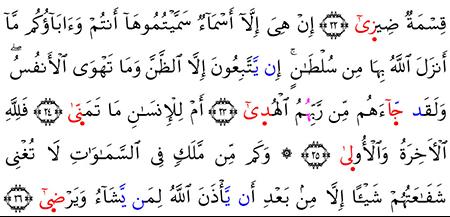 قِسْمَةٌ ضِيزَىٰٓ ۝٢٢ إِنْ هِىَ إِلَّآ أَسْمَآءٌ سَمَّيْتُمُوهَآ أَنتُمْ وَءَابَآؤُكُم مَّآ
أَنزَلَ اللَّهُ بِهَا مِن سُلْطَـٰنٍۚ إِن يَّتَّبِعُونَ إِلَّا الظَّنَّ وَمَا تَهْوَى الْأَنفُسُۖ
وَلَقَد جَّآءَهُم مِّن رَّبِّهُمُ الْهُدَىٰٓ ۝٢٣ أَمْ لِلْإِنسَـٰنِ مَا تَمَنَّىٰ ۝٢٤ فَلِلَّهِ
الْأَخِرَةُ وَالْأُولَىٰ ۝٢٥ ۞ وَكَم مِّن مَّلَكٍ فِى السَّمَـٰوَٰتِ لَا تُغْنِى
شَفَـٰعَتُهُمْ شَيْـًٔا إِلَّا مِنۢ بَعْدِ أَن يَّأْذَنَ اللَّهُ لِمَن يَّشَآءُ وَيَرْضَىٰٓ ۝٢٦